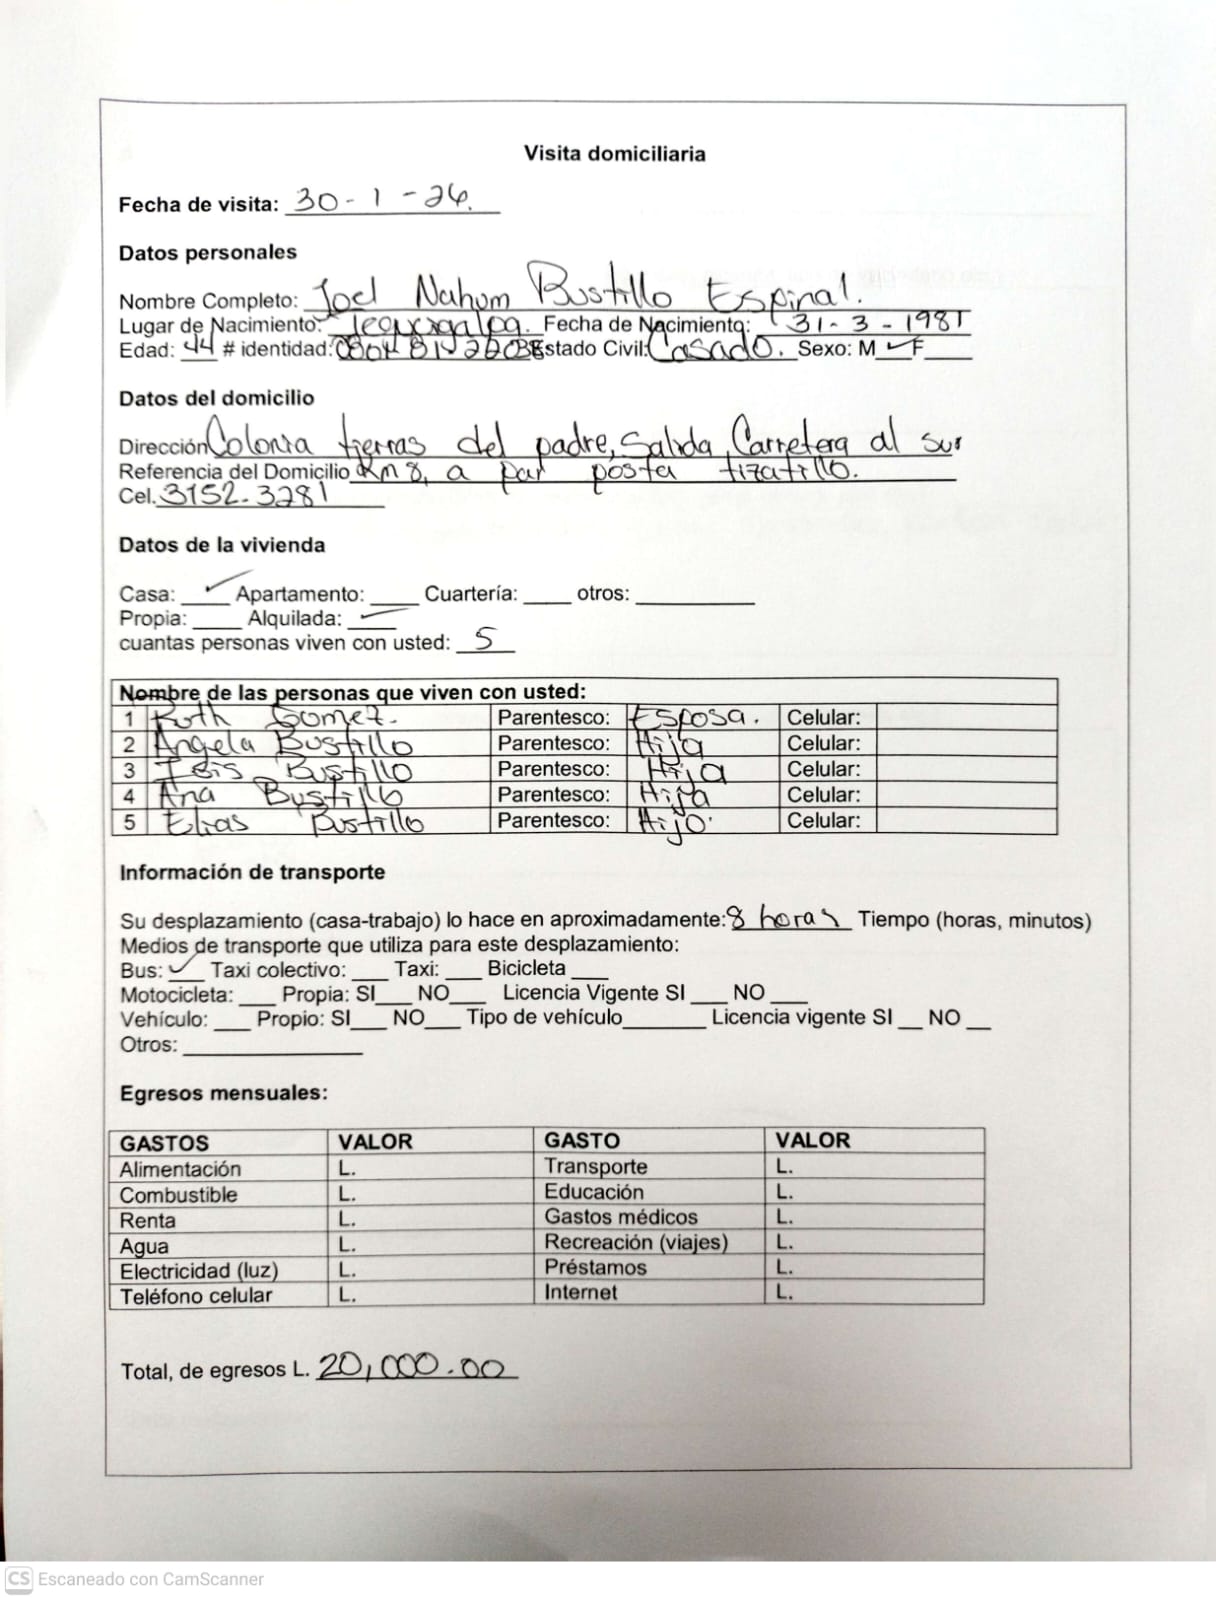 Visita domiciliaria
Fecha de visita: 30-1-26.
Datos personales
Nombre Completo: Joel Nahum Bustillo Espinal.
Lugar de Nacimiento: Tegucigalpa. Fecha de Nacimiento: 31-3-1981
Edad: 44 # identidad: Estado Civil: Casado. Sexo: M ✓ F
Datos del domicilio
Dirección Colonia tierras del padre, Salida Carretera al sur
Referencia del Domicilio Km 8, a par posta tizatillo.
Cel. 3152-3281
Datos de la vivienda
Casa: ✓ Apartamento: ____ Cuartería: ____ otros: ____
Propia: ____ Alquilada: ✓
cuantas personas viven con usted: 5
Nombre de las personas que viven con usted:
1 Ruth Gomez. Parentesco: Esposa. Celular:
2 Angela Bustillo Parentesco: Hija Celular:
3 Bustillo Parentesco: Hija Celular:
4 Ana Bustillo Parentesco: Hija Celular:
5 Elias Bustillo Parentesco: Hijo. Celular:
Información de transporte
Su desplazamiento (casa-trabajo) lo hace en aproximadamente: 8 horas Tiempo (horas, minutos)
Medios de transporte que utiliza para este desplazamiento:
Bus: ✓ Taxi colectivo: ___ Taxi: ___ Bicicleta ___
Motocicleta: ___ Propia: SI___ NO___ Licencia Vigente SI ___ NO ___
Vehículo: ___ Propio: SI___ NO___ Tipo de vehículo_______ Licencia vigente SI __ NO __
Otros: _______________
Egresos mensuales:
GASTOS VALOR GASTO VALOR
Alimentación L. Transporte L.
Combustible L. Educación L.
Renta L. Gastos médicos L.
Agua L. Recreación (viajes) L.
Electricidad (luz) L. Préstamos L.
Teléfono celular L. Internet L.
Total, de egresos L. 20,000.00
CS Escaneado con CamScanner